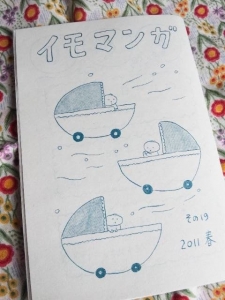 イモマンガ
その19
2011 春